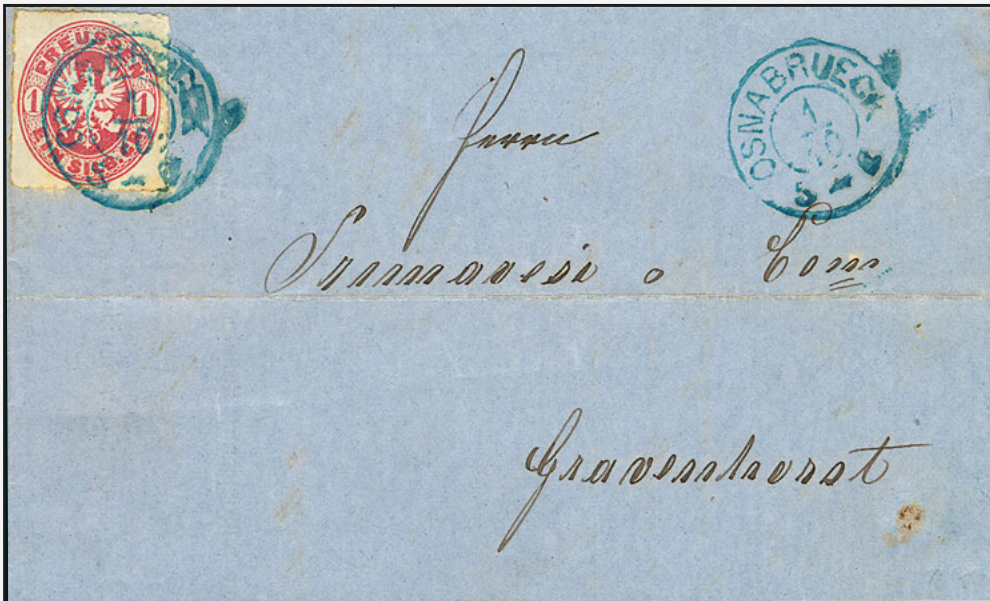 PREUSSEN
1 1
EIN SILB. GR.
OSNABRUECK
1
10
5 - 6
Herrn
Primavesi & Com
Gravenhorst